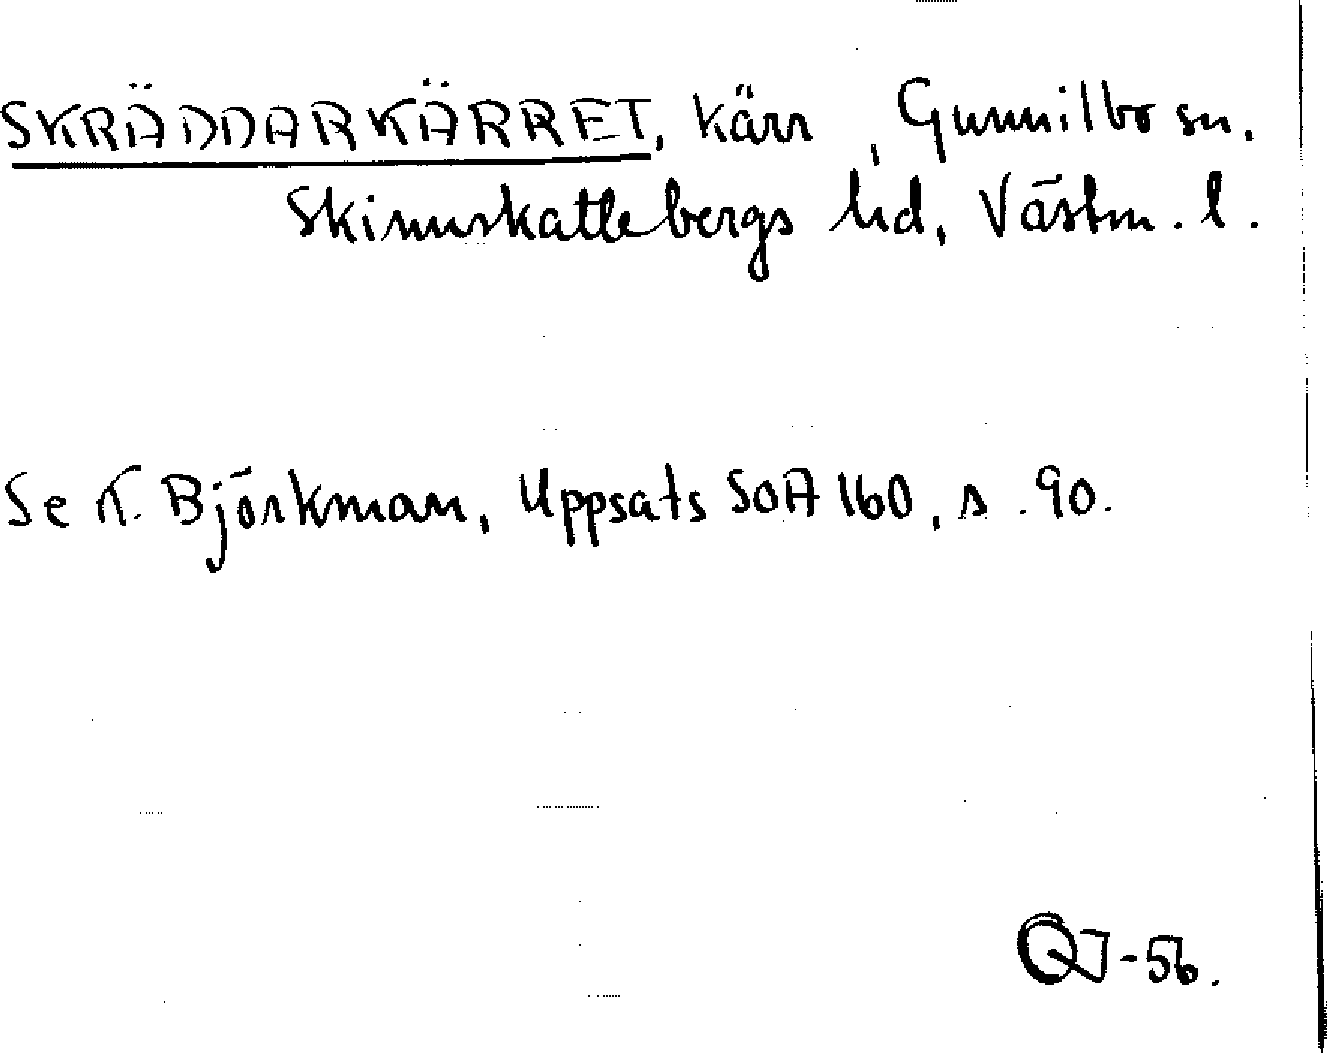 SKRÄDDARKÄRRET, kärr, Gunnilbo sn.
Skinnskattebergs hd, Västm. l.
Se K. Björkman, Uppsats SOA 160, s. 90.
QJ-56.